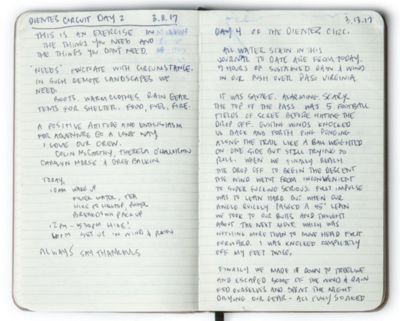 DIENTES CIRCUIT DAY 2 3.11.17
THIS IS AN EXERCISE IN
THE THINGS YOU NEED AND
THE THINGS YOU DON'T NEED.
"NEEDS" FLUCTUATE WITH CIRCUMSTANCE.
IN SUCH REMOTE LANDSCAPES WE
NEED.
BOOTS, WARM CLOTHES, RAIN GEAR
TENTS FOR SHELTER. FOOD, FUEL, FIRE.
A POSITIVE ATTITUDE AND ENTHUSIASM
FOR ADVENTURE GO A LONG WAY.
I LOVE OUR CREW.
COLIN MCCARTHY, THERESA
CARALYN MORSE & GREG BALKIN
TODAY,
10AM WAKE UP
FILTER WATER, TEA
HIKE TO HILLTOP,
BREAKDOWN PACK UP
12PM - 5:30PM HIKE!
6PM SET UP IN WIND & RAIN
ALWAYS SAY THANKYOUS
3.13.17
DAY 4 OF THE DIENTES CIRC.
ALL WATER STAIN IN THIS
JOURNAL TO DATE ARE FROM TODAY.
9 HOURS OF SUSTAINED RAIN & WIND
IN OUR PUSH OVER PASO VIRGINIA.
IT WAS SKETCHY. ALARMING SCARY
THE TOP OF THE PASS WAS 5 FOOTBALL
FIELDS OF SCREE BEFORE HITTING THE
DROP OFF. GUSTING WINDS KNOCKED
US BACK AND FORTH PING PONGING
ALONG THE TRAIL LIKE A BALL WEIGHTED
ON ONE SIDE BUT STILL TRYING TO
ROLL. WHEN WE FINALLY REACH
THE DROP OFF TO BEGIN THE DESCENT
THE WIND WENT FROM INCONVENIENT
TO SUPER FUCKING SERIOUS. FIRST IMPULSE
WAS TO LEAN HARD BUT WHEN OUR
ANGLE QUICKLY PASSED A 45° LEAN
WE TOOK TO OUR BUTTS AND THOUGHT
ABOUT THE NEXT MOVE WHICH WAS
NOTHING MORE THAN TO MOVE HEAD FIRST
FORWARD. I WAS KNOCKED COMPLETELY
OFF MY FEET TWICE.
FINALLY WE MADE IT DOWN TO TREELINE
AND ESCAPED SOME OF THE WIND & RAIN
FED OURSELVES AND SPENT THE NIGHT
DRYING OUR GEAR - ALL FULLY SOAKED